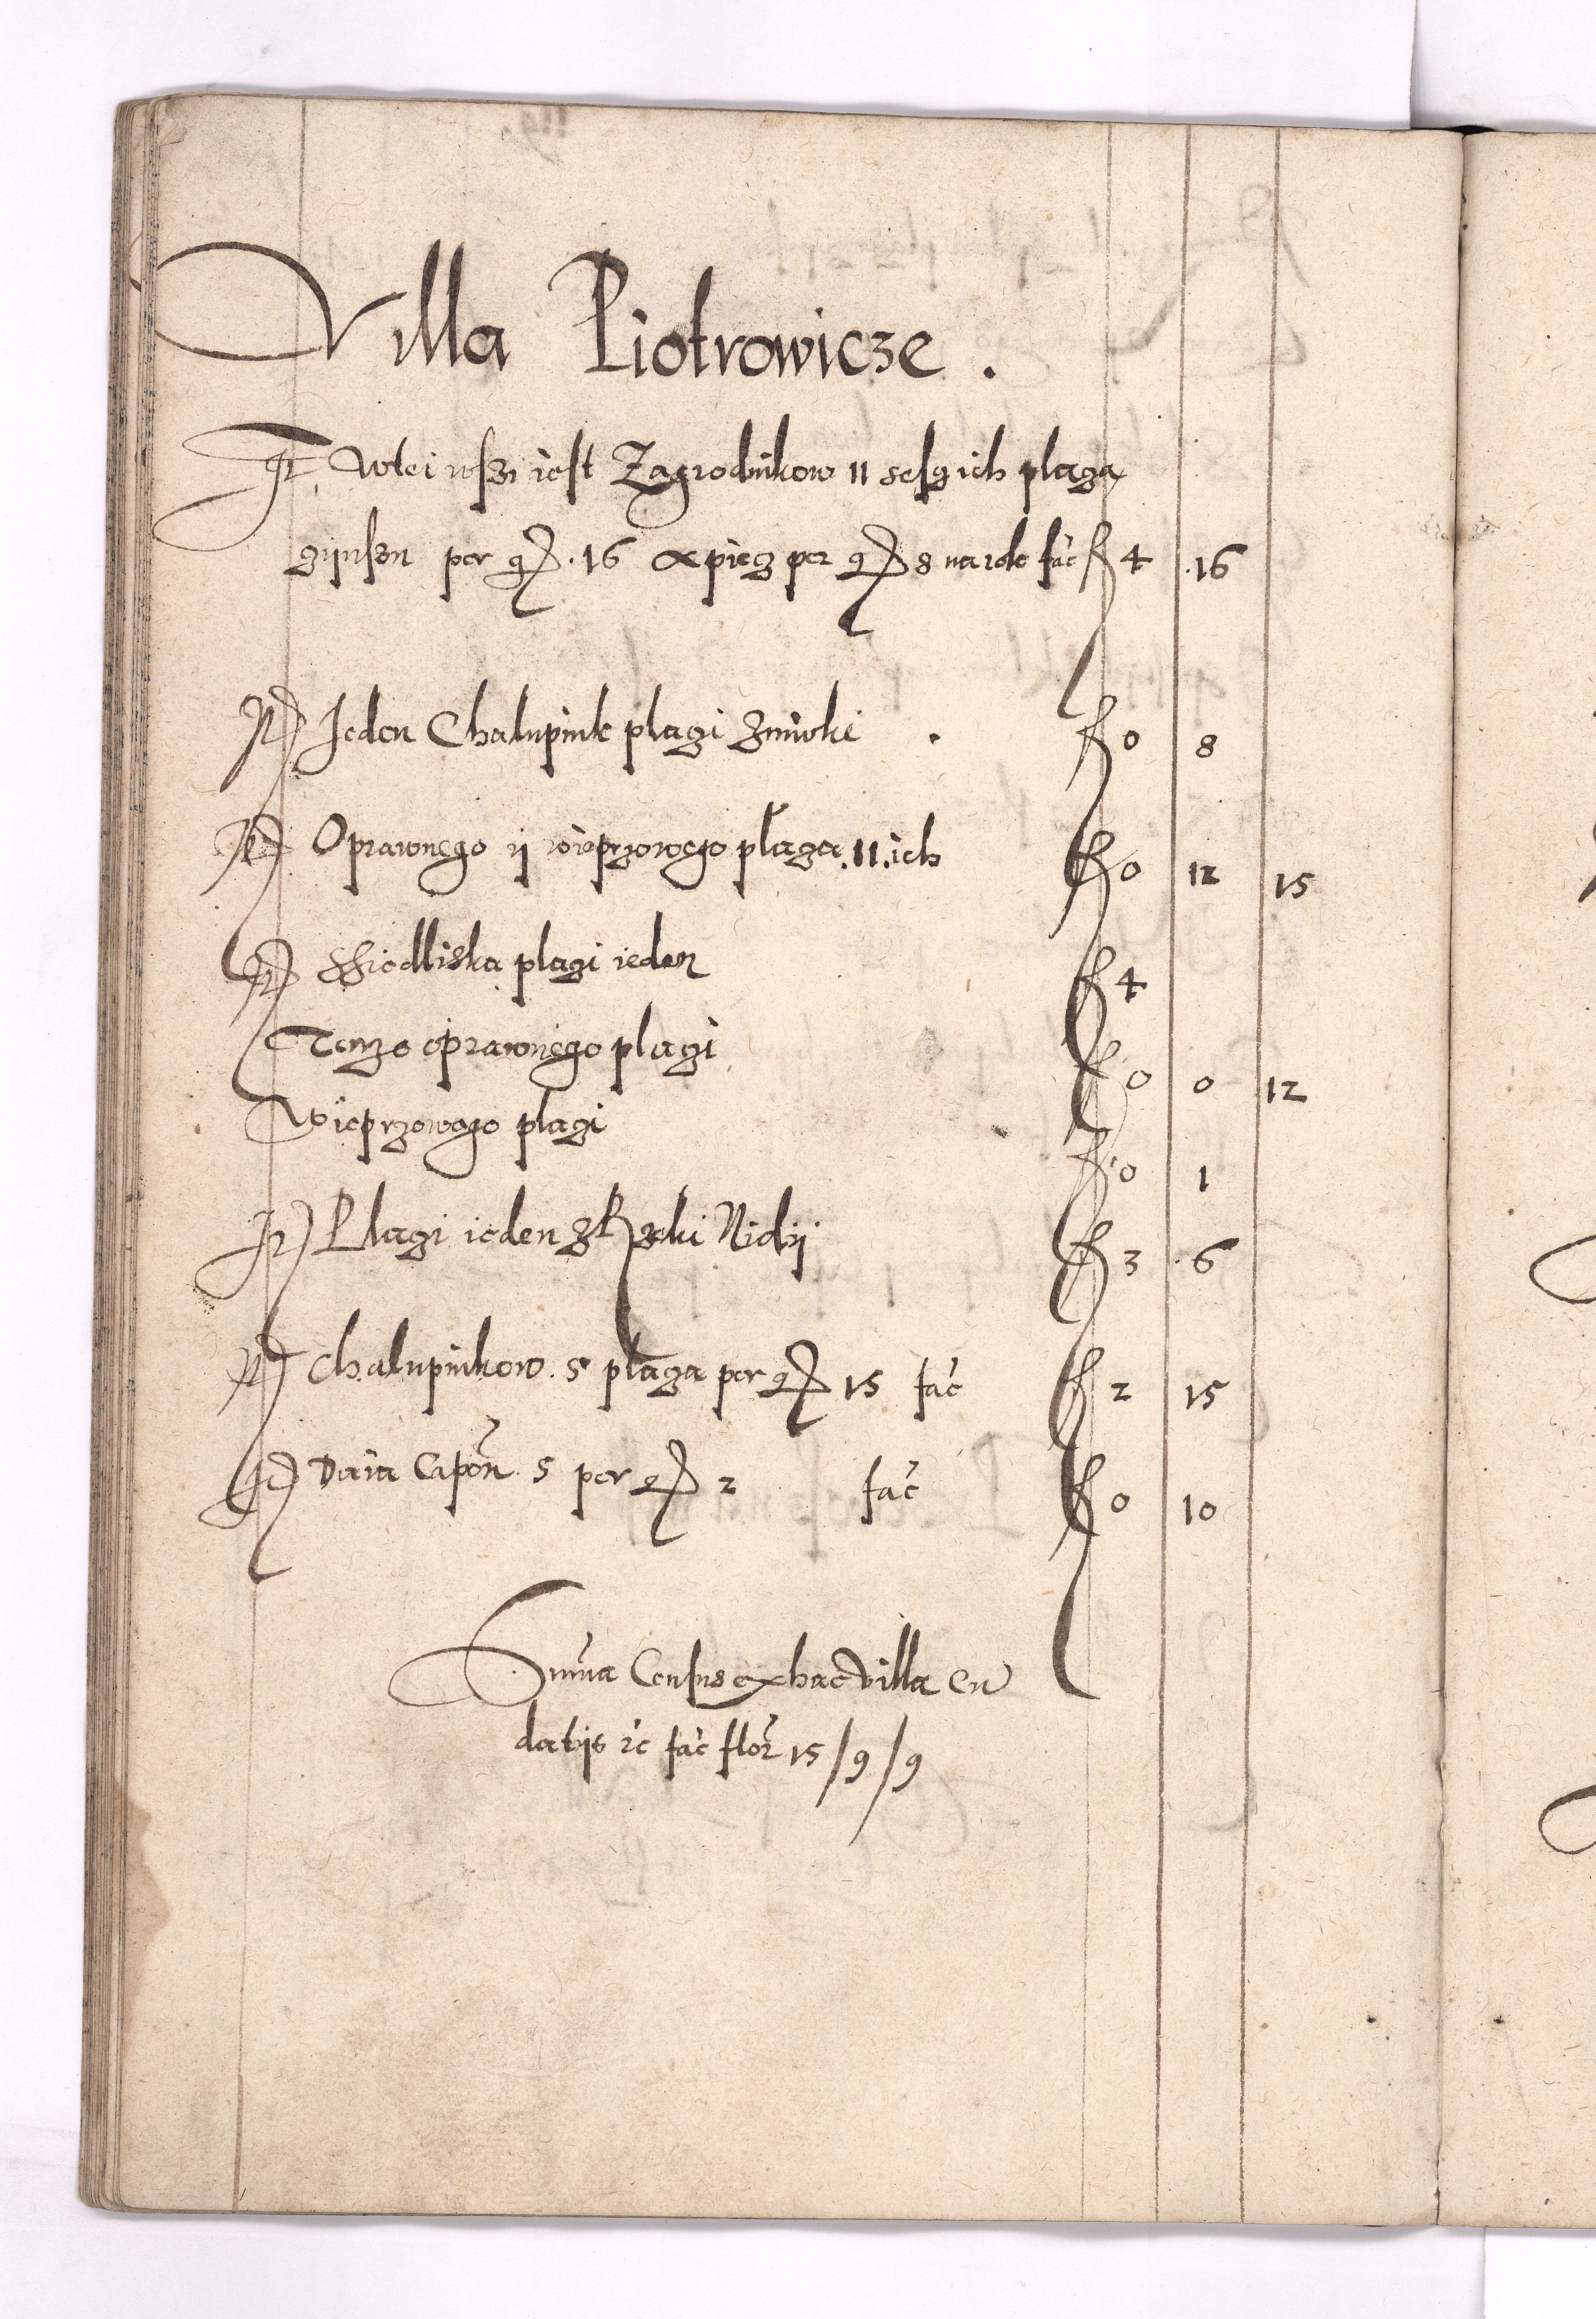 Villa Piotrowicze.
It wtei wszi iest Zagrodnikow 11 sescz ich placza
czijnszu per gr. 16 a piecz per gr 8 na rok fac f 4 16
It Jeden Chalupnik placzi f 0 8
It Oprawnego ij wieprzowego placza 11 ich f 0 12 15
It Siedliska placzi ieden f 4
Tenze oprawnego placzi f 0 0 12
Wieprzowego placzi f 0 1
It Placzi ieden z Rzeki Nidij f 3 6
It Chalupnikow 5 placza per gr 15 fac f 2 15
It Daia Capon 5 per gr 2 fac f 0 10
Summa Census ex hac villa Cu
datijs fac flor 15/9/9